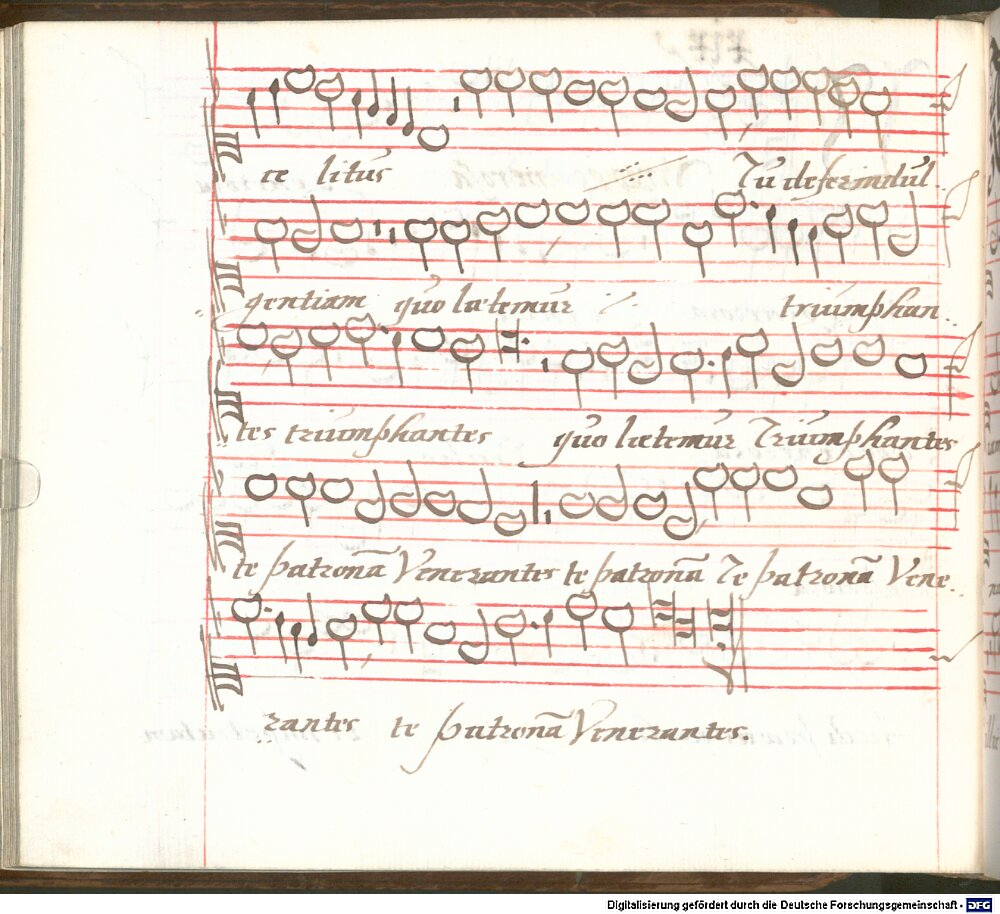 ce litus Tu defer indul..
gentiam quo lætemur triumphan..
tes triumphantes quo lætemur Triumphantes
te patronã Venerantes te patronã Te patronã Vene..
rantes te patronã Venerantes.
Digitalisierung gefördert durch die Deutsche Forschungsgemeinschaft - DFG